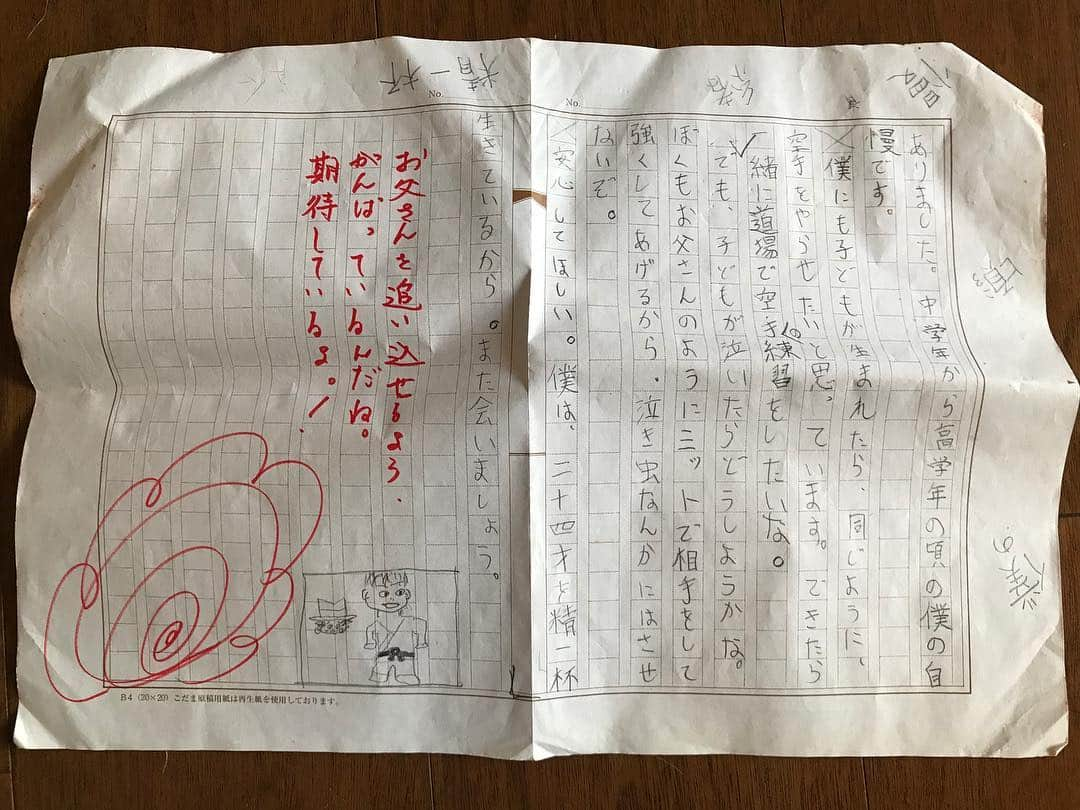 ありました。中学年から高学年の頃の僕の自
慢です。
僕にも子どもが生まれたら、同じように、
空手をやらせたいと思っています。できたら
一緒に道場で空手の練習をしたいな。
でも、子どもが泣いたらどうしようかな。
ぼくもお父さんのようにミットで相手をして
強くしてあげるから、泣き虫なんかにはさせ
ないぞ。
安心してほしい。僕は、二十四才を精一杯
生きているから。また会いましょう。
お父さんを追い込せるよう、
がんばっているんだね。
期待しているよ。!
No.
No.
精一杯
僕の
B4 (20×20) こだま原稿用紙は再生紙を使用しております。